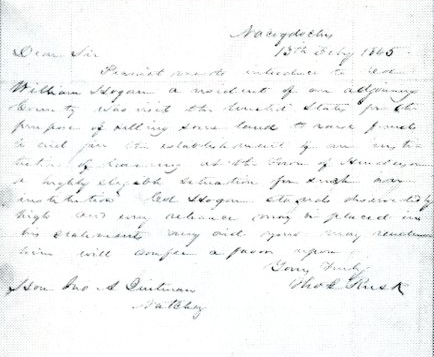 Nacogdoches
13th Feby 1845
Dear Sir
Permit me to introduce to Col
William Hogan a resident of an adjoining
County who visit the United States for the
purpose of selling some land to raise funds
to aid in the establishment of an insti
tution of learning at the Town of Henderson
a highly eligible situation for such an
institution Col Hogan stands deservedly
high and any reliance may be placed in
his statement any aid you may render
him will confer a favor upon
Yours Truly
Tho J Rusk
Hon Jno A Quitman
Natchez